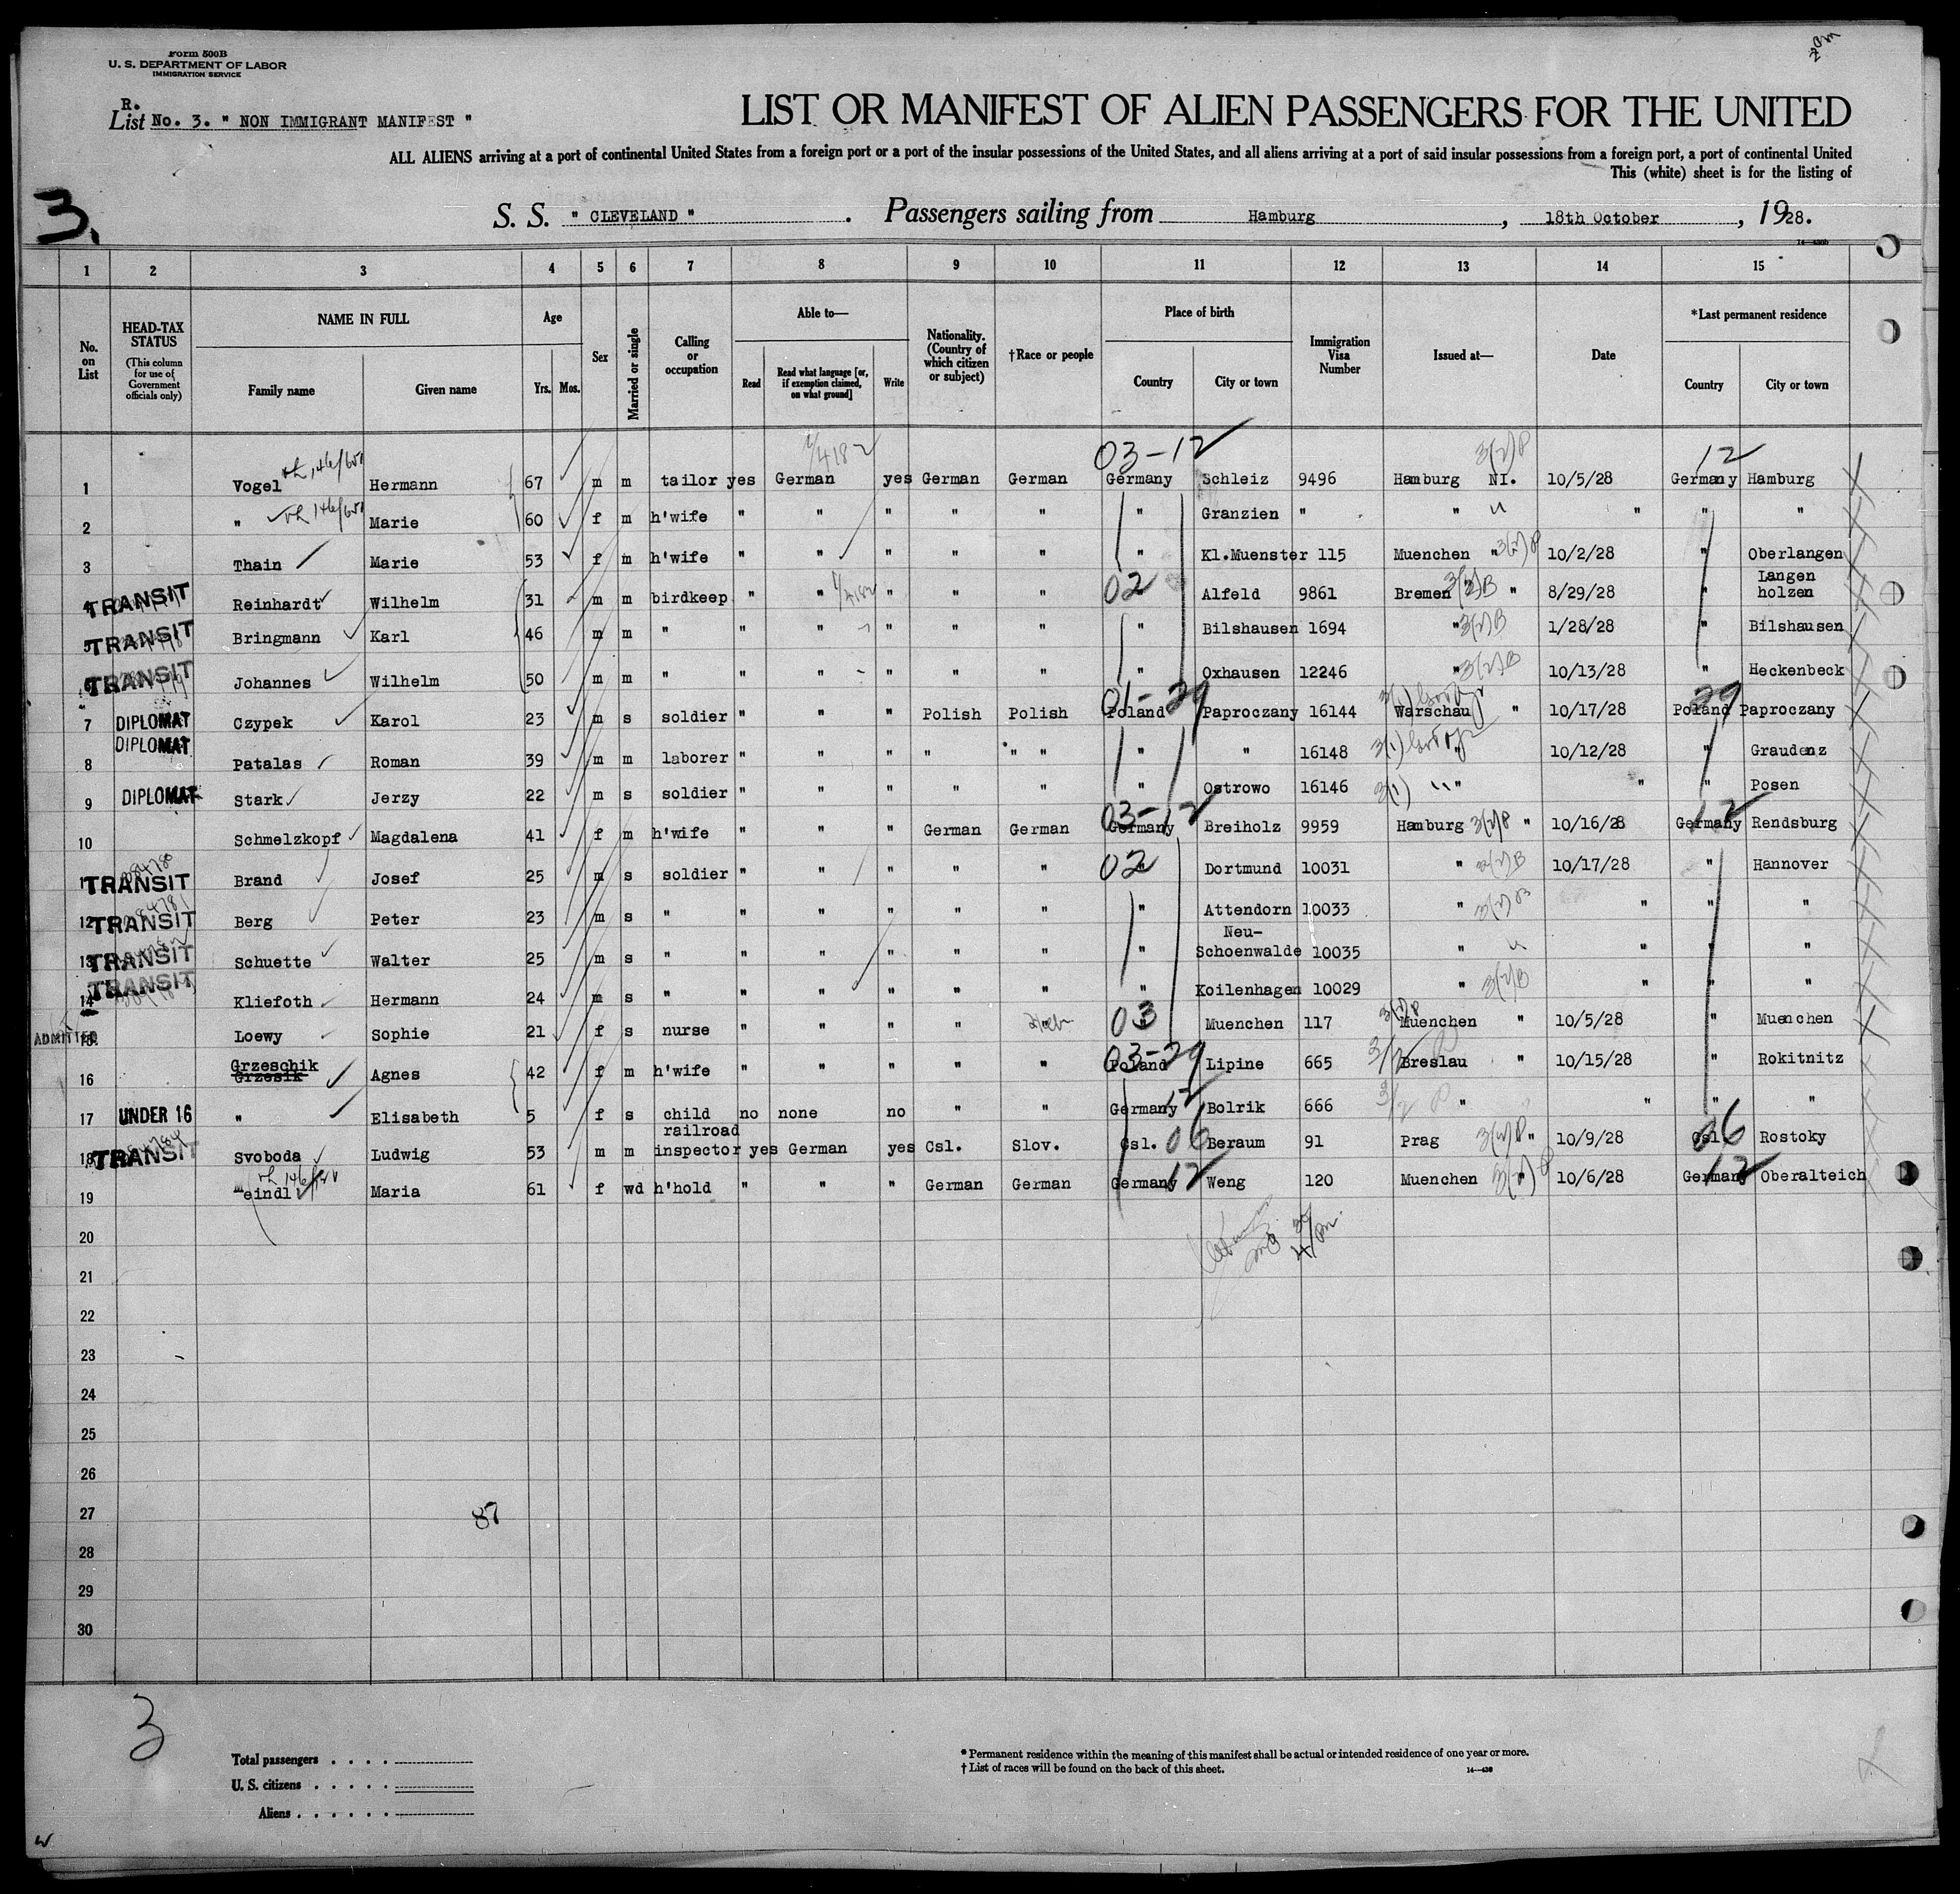 Form 500B
U. S. DEPARTMENT OF LABOR
IMMIGRATION SERVICE
R.
List No. 3. " NON IMMIGRANT MANIFEST "
LIST OR MANIFEST OF ALIEN PASSENGERS FOR THE UNITED
ALL ALIENS arriving at a port of continental United States from a foreign port or a port of the insular possessions of the United States, and all aliens arriving at a port of said insular possessions from a foreign port, a port of continental United
This (white) sheet is for the listing of
3.
S. S. " CLEVELAND " . Passengers sailing from Hamburg , 18th October , 1928.
1 2 3 4 5 6 7 8 9 10 11 12 13 14 15
No. on List
HEAD-TAX STATUS (This column for use of Government officials only)
NAME IN FULL Family name Given name
Age Yrs. Mos.
Sex
Married or single
Calling or occupation
Able to— Read Read what language [or, if exemption claimed, on what ground] Write
Nationality. (Country of which citizen or subject)
†Race or people
Place of birth Country City or town
Immigration Visa Number
Issued at—
Date
*Last permanent residence Country City or town
03-12 12
1 Vogel Hermann 67 m m tailor yes German yes German German Germany Schleiz 9496 Hamburg NI. 10/5/28 Germany Hamburg
2 " Marie 60 f m h'wife " " " " " " Granzien " " " " "
3 Thain Marie 53 f m h'wife " " " " " " Kl.Muenster 115 Muenchen " 10/2/28 " Oberlangen
4 TRANSIT Reinhardt Wilhelm 31 m m birdkeep " " " " " 02 Alfeld 9861 Bremen " 8/29/28 " Langen holzen
5 TRANSIT Bringmann Karl 46 m m " " " " " " " Bilshausen 1694 " 1/28/28 " Bilshausen
6 TRANSIT Johannes Wilhelm 50 m m " " " " " " " Oxhausen 12246 " 10/13/28 " Heckenbeck
7 DIPLOMAT Czypek Karol 23 m s soldier " " " Polish Polish 01-29 Poland Paproczany 16144 Warschau " 10/17/28 29 Poland Paproczany
8 DIPLOMAT Patalas Roman 39 m m laborer " " " " " " " " 16148 " 10/12/28 " Graudenz
9 DIPLOMAT Stark Jerzy 22 m s soldier " " " " " " Ostrowo 16146 " " " Posen
10 Schmelzkopf Magdalena 41 f m h'wife " " " German German 03-12 Germany Breiholz 9959 Hamburg " 10/16/28 12 Germany Rendsburg
11 TRANSIT Brand Josef 25 m s soldier " " " " " 02 " Dortmund 10031 " 10/17/28 " Hannover
12 TRANSIT Berg Peter 23 m s " " " " " " " Attendorn 10033 " " " "
13 TRANSIT Schuette Walter 25 m s " " " " " " " Neu-Schoenwalde 10035 " " " "
14 TRANSIT Kliefoth Hermann 24 m s " " " " " " " Koilenhagen 10029 " " " "
ADMITTED 15 Loewy Sophie 21 f s nurse " " " " 03 " Muenchen 117 Muenchen " 10/5/28 " Muenchen
Grzeschik
16 Grzesik Agnes 42 f m h'wife " " " " " 03-29 Poland Lipine 665 Breslau " 10/15/28 " Rokitnitz
17 UNDER 16 " Elisabeth 5 f s child no none no " " 12 Germany Bolrik 666 " " " "
18 TRANSIT Svoboda Ludwig 53 m m railroad inspector yes German yes Csl. Slov. Csl. 06 Beraum 91 Prag " 10/9/28 Csl. 06 Rostoky
19 Meindl Maria 61 f wd h'hold " " " German German Germany 12 Weng 120 Muenchen " 10/6/28 Germany 12 Oberalteich
20
21
22
23
24
25
26
27 87
28
29
30
3
Total passengers . . . .
U. S. citizens . . . . .
Aliens . . . . . .
* Permanent residence within the meaning of this manifest shall be actual or intended residence of one year or more.
† List of races will be found on the back of this sheet.
14—430
W